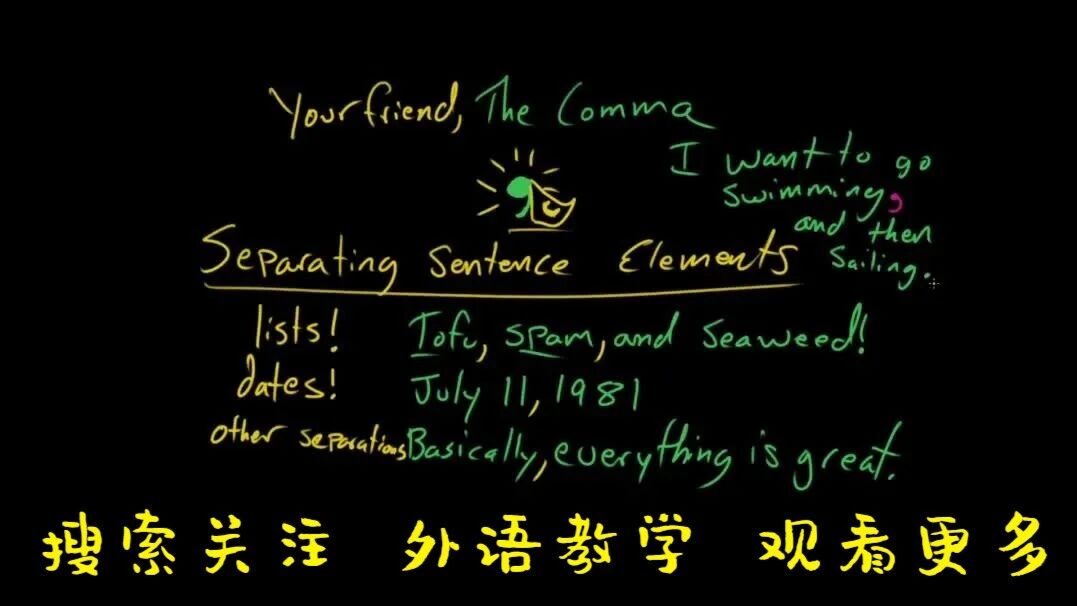 Your friend, The Comma
I want to go
swimming,
and then
sailing.
Separating Sentence Elements
lists! Tofu, spam, and seaweed!
dates! July 11, 1981
other separations Basically, everything is great.
搜索关注 外语教学 观看更多